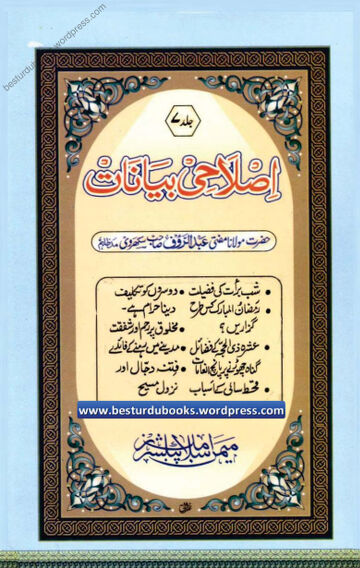 besturdubooks.wordpress.com
جلد ۷
اِصْلَاحِیْ بَیَانَات
حضرت مولانا مفتی عبدالرؤف صاحب سکھروی مدظلہم
• شب برأت کی فضیلت
• رمضان المبارک کس طرح
گزاریں؟
• عشرہ ذی الحجہ کے فضائل
• گناہ چھوڑنے پر پانچ انعامات
• قحط سالی کے اسباب
• دوسروں کو تکلیف
دینا حرام ہے۔
• مخلوق پر رحم اور شفقت
• مدینے میں بسنے کے فائدے
• فتنہ دجال اور
نزول مسیح
www.besturdubooks.wordpress.com
میمن اسلامک پبلشرز